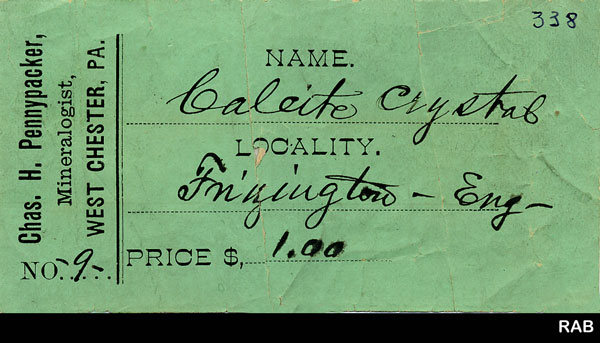 338
Chas. H. Pennypacker,
Mineralogist,
WEST CHESTER, PA.
NO. 9-
NAME.
Calcite Crystal
LOCALITY.
Frizington - Eng-
PRICE $, 1.00
RAB